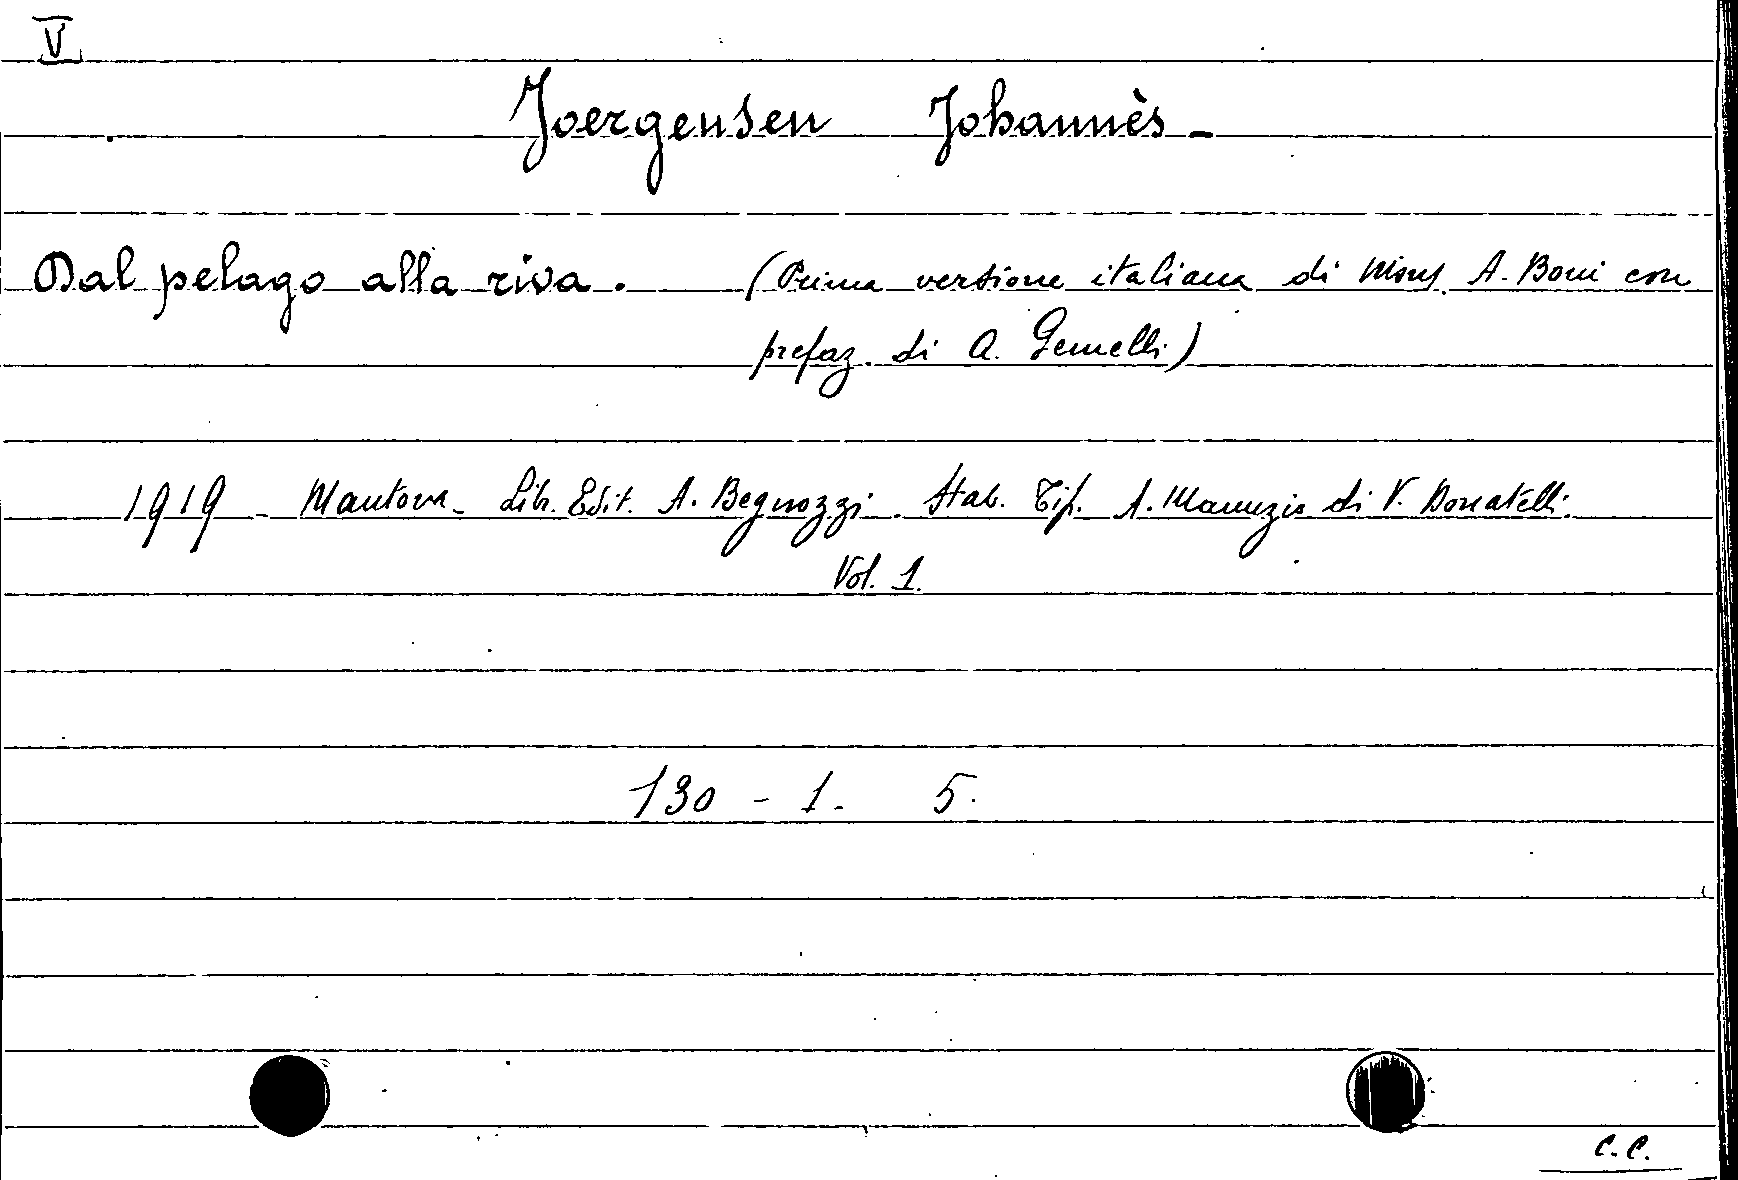 V
Joergensen Johannès -
Dal pelago alla riva. (Prima versione italiana di Mons. A. Boni con
prefaz. di A. Gemelli)
1919 - Mantova - Lib. Edit. A. Begnozzi. Stab. Tip. A. Manuzio di V. Donatelli.
Vol. 1.
130 - 1. 5.
C.C.